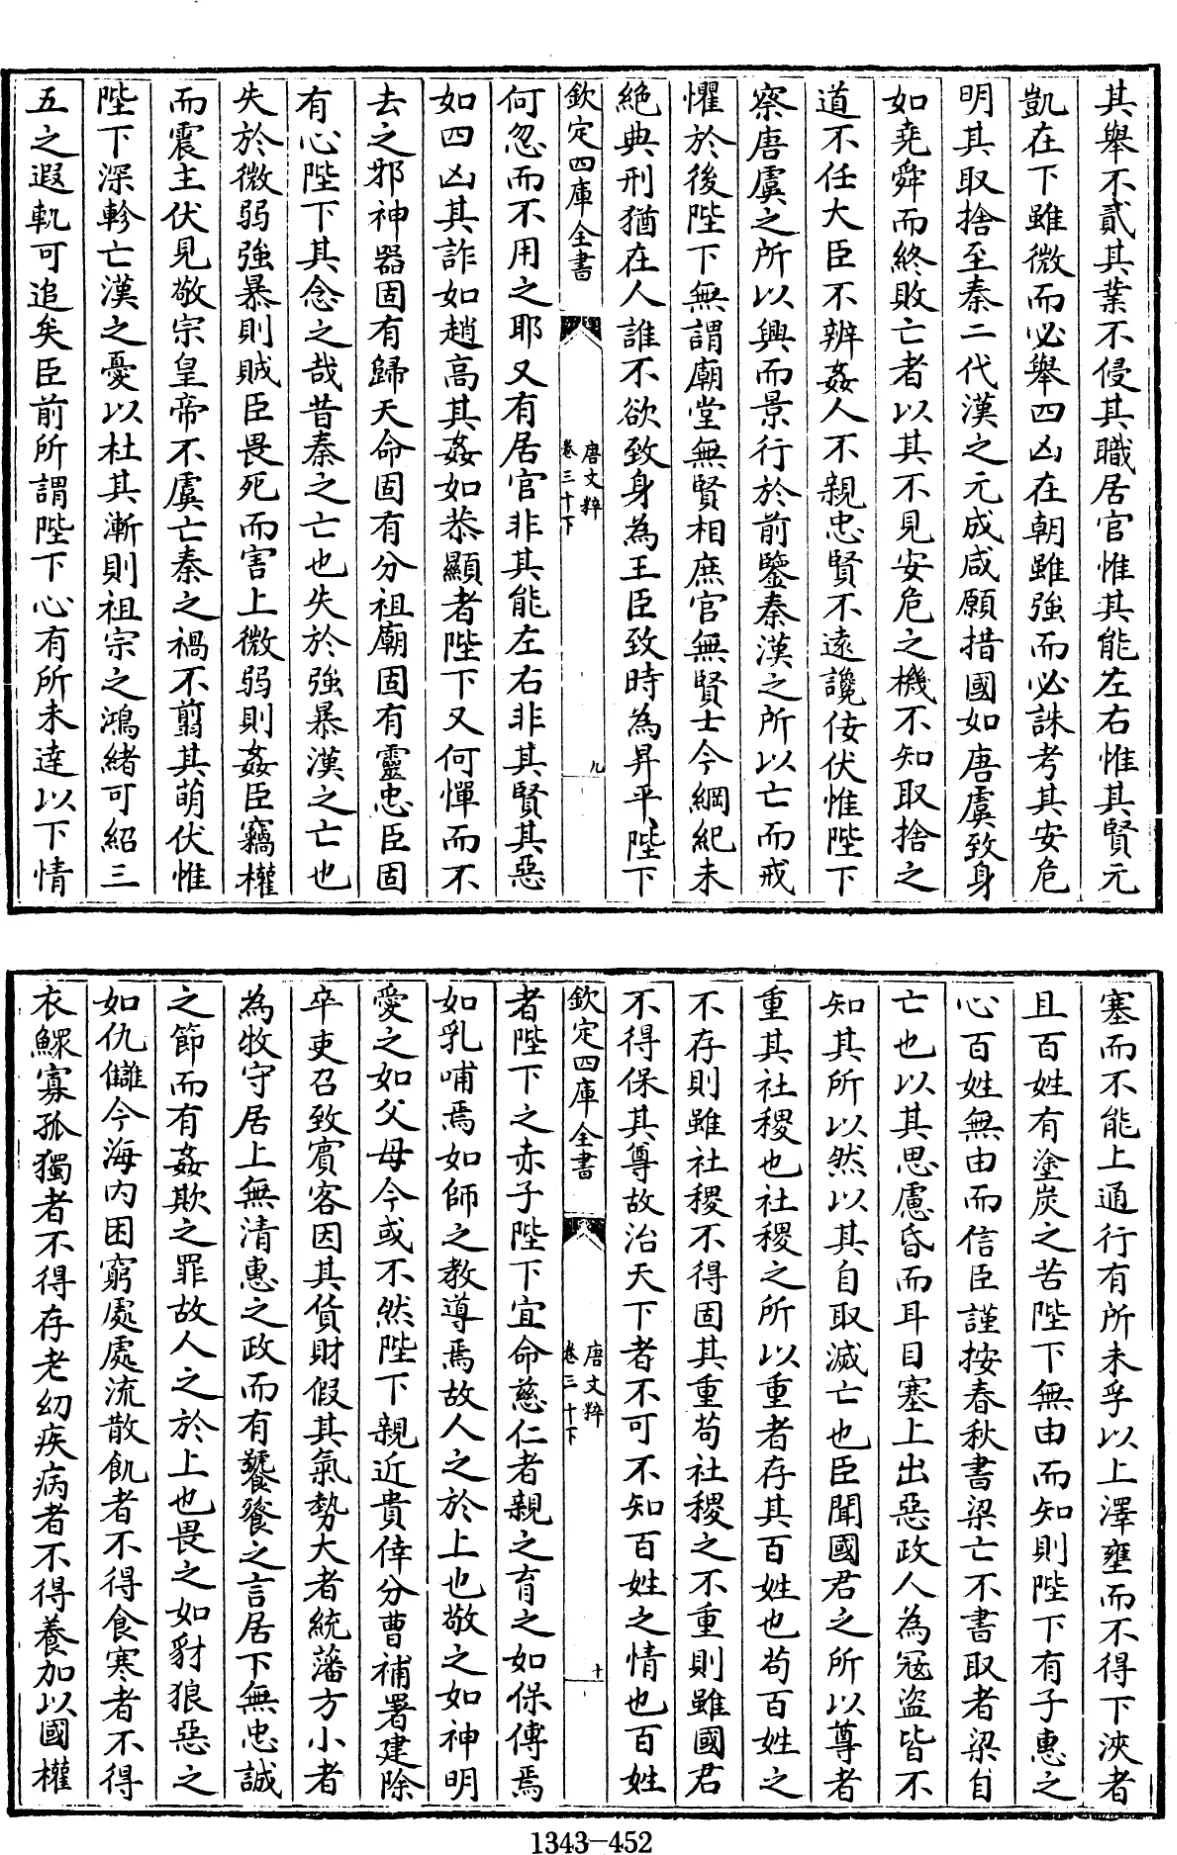 其舉不貳其業不侵其職居官惟其能左右惟其賢元
凱在下雖微而必舉四凶在朝雖強而必誅考其安危
明其取捨至秦二代漢之元成咸願措國如唐虞致身
如堯舜而終敗亡者以其不見安危之機不知取捨之
道不任大臣不辨姦人不親忠賢不遠讒佞伏惟陛下
察唐虞之所以興而景行於前鑒秦漢之所以亡而戒
懼於後陛下無謂廟堂無賢相庶官無賢士今綱紀未
絶典刑猶在人誰不欲致身為王臣致時為昇平陛下
欽定四庫全書
唐文粹
卷三十下
九
何忽而不用之耶又有居官非其能左右非其賢其惡
如四凶其詐如趙高其姦如恭顯者陛下又何憚而不
去之邪神器固有歸天命固有分祖廟固有靈忠臣固
有心陛下其念之哉昔秦之亡也失於強暴漢之亡也
失於微弱強暴則賊臣畏死而害上微弱則姦臣竊權
而震主伏見敬宗皇帝不虞亡秦之禍不翦其萌伏惟
陛下深軫亡漢之憂以杜其漸則祖宗之鴻緒可紹三
五之遐軌可追矣臣前所謂陛下心有所未達以下情
塞而不能上通行有所未孚以上澤壅而不得下浹者
且百姓有塗炭之苦陛下無由而知則陛下有子惠之
心百姓無由而信臣謹按春秋書梁亡不書取者梁自
亡也以其思慮昏而耳目塞上出惡政人為寇盜皆不
知其所以然以其自取滅亡也臣聞國君之所以尊者
重其社稷也社稷之所以重者存其百姓也茍百姓之
不存則雖社稷不得固其重茍社稷之不重則雖國君
不得保其尊故治天下者不可不知百姓之情也百姓
欽定四庫全書
唐文粹
卷三十下
十
者陛下之赤子陛下宜命慈仁者親之育之如保傅焉
如乳哺焉如師之教導焉故人之於上也敬之如神明
愛之如父母今或不然陛下親近貴倖分曹補署建除
卒吏召致賓客因其貨財假其氣勢大者統藩方小者
為牧守居上無清惠之政而有饕餮之言居下無忠誠
之節而有姦欺之罪故人之於上也畏之如豺狼惡之
如仇讎今海內困窮處處流散飢者不得食寒者不得
衣鰥寡孤獨者不得存老幼疾病者不得養加以國權
1343-452